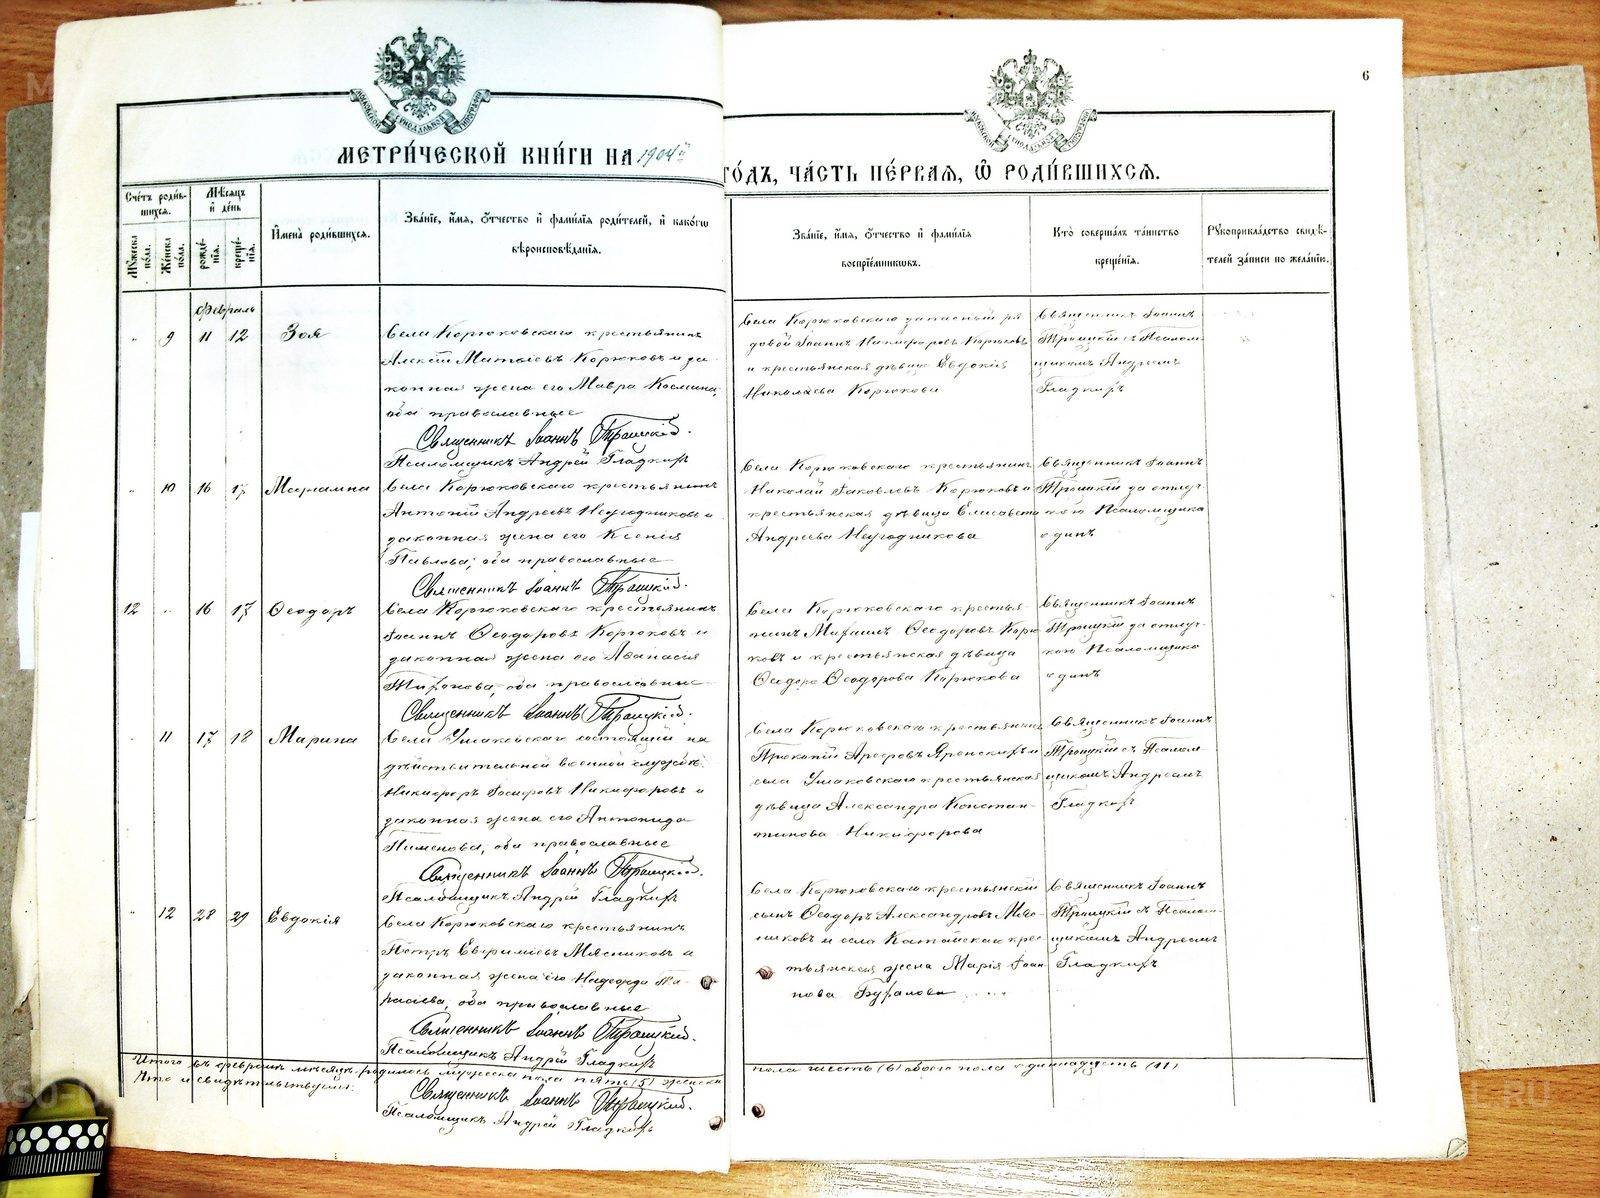 6
МОСКОВСКОЙ СѴНОДАЛЬНОЙ ТИПОГРАФІИ
МЕТРИ́ЧЕСКОЙ КНИ́ГИ НА 1904й
ГО́ДЪ, ЧА́СТЬ ПЕ́РВАЯ, Ѽ РОДИ́ВШИХСЯ.
Сче́тъ роди́в-
шихся.
Мѣсяцъ
и де́нь
Му́жеска по́ла.
Же́нска по́ла.
рожде́-
нія.
креще́-
нія.
Имена̀ роди́вшихся.
Зва́ніе, и́мя, о́тчество и фами́лія роди́телей, и како́гѡ
вѣроисповѣ́данія.
Зва́ніе, и́мя, о́тчество и фами́лія
воспріе́мниковъ.
Кто̀ соверша́лъ та́инство
креще́нія.
Рукоприкла́дство свидѣ́-
телей за́писи по жела́нію.
Февраль
" 9 11 12 Зоя
Села Корюковскаго крестьянинъ
Алексій Матѳіевъ Корюковъ и за-
конная жена его Мавра Космина,
оба православные
Священникъ Іоаннъ Троицкій.
Псаломщикъ Андрей Гладкихъ
Села Корюковскаго запасный ря-
довой Іоаннъ Никифоровъ Корюковъ
и крестьянская дѣвица Евдокія
Николаева Корюкова
Священникъ Іоаннъ
Троицкій съ Псалом-
щикомъ Андреемъ
Гладкихъ
" 10 16 17 Маріамна
Села Корюковскаго крестьянинъ
Антоній Андреевъ Неугодниковъ и
законная жена его Ксенія
Павлова, оба православные
Священникъ Іоаннъ Троицкій.
Села Корюковскаго крестьянинъ
Николай Іаковлевъ Корюковъ и
крестьянская дѣвица Елисавета
Андреева Неугодникова
Священникъ Іоаннъ
Троицкій за отлуч-
кою Псаломщика
одинъ
12 " 16 17 Ѳеодоръ
Села Корюковскаго крестьянинъ
Іоаннъ Ѳеодоровъ Корюковъ и
законная жена его Аѳанасія
Тихонова, оба православные
Священникъ Іоаннъ Троицкій.
Села Корюковскаго крестья-
нинъ Михаилъ Ѳеодоровъ Корю-
ковъ и крестьянская дѣвица
Ѳеодора Ѳеодорова Корюкова
Священникъ Іоаннъ
Троицкій за отлуч-
кою Псаломщика
одинъ
" 11 17 18 Марина
Села Ушаковскаго состоящій на
дѣйствительной военной службѣ
Никифоръ Іосифовъ Никифоровъ и
законная жена его Антонида
Пименова, оба православные
Священникъ Іоаннъ Троицкій.
Псаломщикъ Андрей Гладкихъ
Села Корюковскаго крестьянинъ
Прокопій Ареѳовъ Яренскихъ и
села Ушаковскаго крестьянская
дѣвица Александра Констан-
тинова Никифорова
Священникъ Іоаннъ
Троицкій съ Псалом-
щикомъ Андреемъ
Гладкихъ
" 12 28 29 Евдокія
Села Корюковскаго крестьянинъ
Петръ Евфиміевъ Мясниковъ и
законная жена его Надежда Та-
расіева, оба православные
Священникъ Іоаннъ Троицкій.
Псаломщикъ Андрей Гладкихъ
Села Корюковскаго крестьянскій
сынъ Ѳеодоръ Александровъ Мяс-
никовъ и села Катайскаго крес-
тьянская жена Марія Іоан-
нова Бухалова
Священникъ Іоаннъ
Троицкій съ Псалом-
щикомъ Андреемъ
Гладкихъ
Итого въ февралѣ мѣсяцѣ родилось мужеска пола пять (5) женска
пола шесть (6) обоего пола одиннадцать (11)
Что и свидѣтельствуемъ:
Священникъ Іоаннъ Троицкій.
Псаломщикъ Андрей Гладкихъ